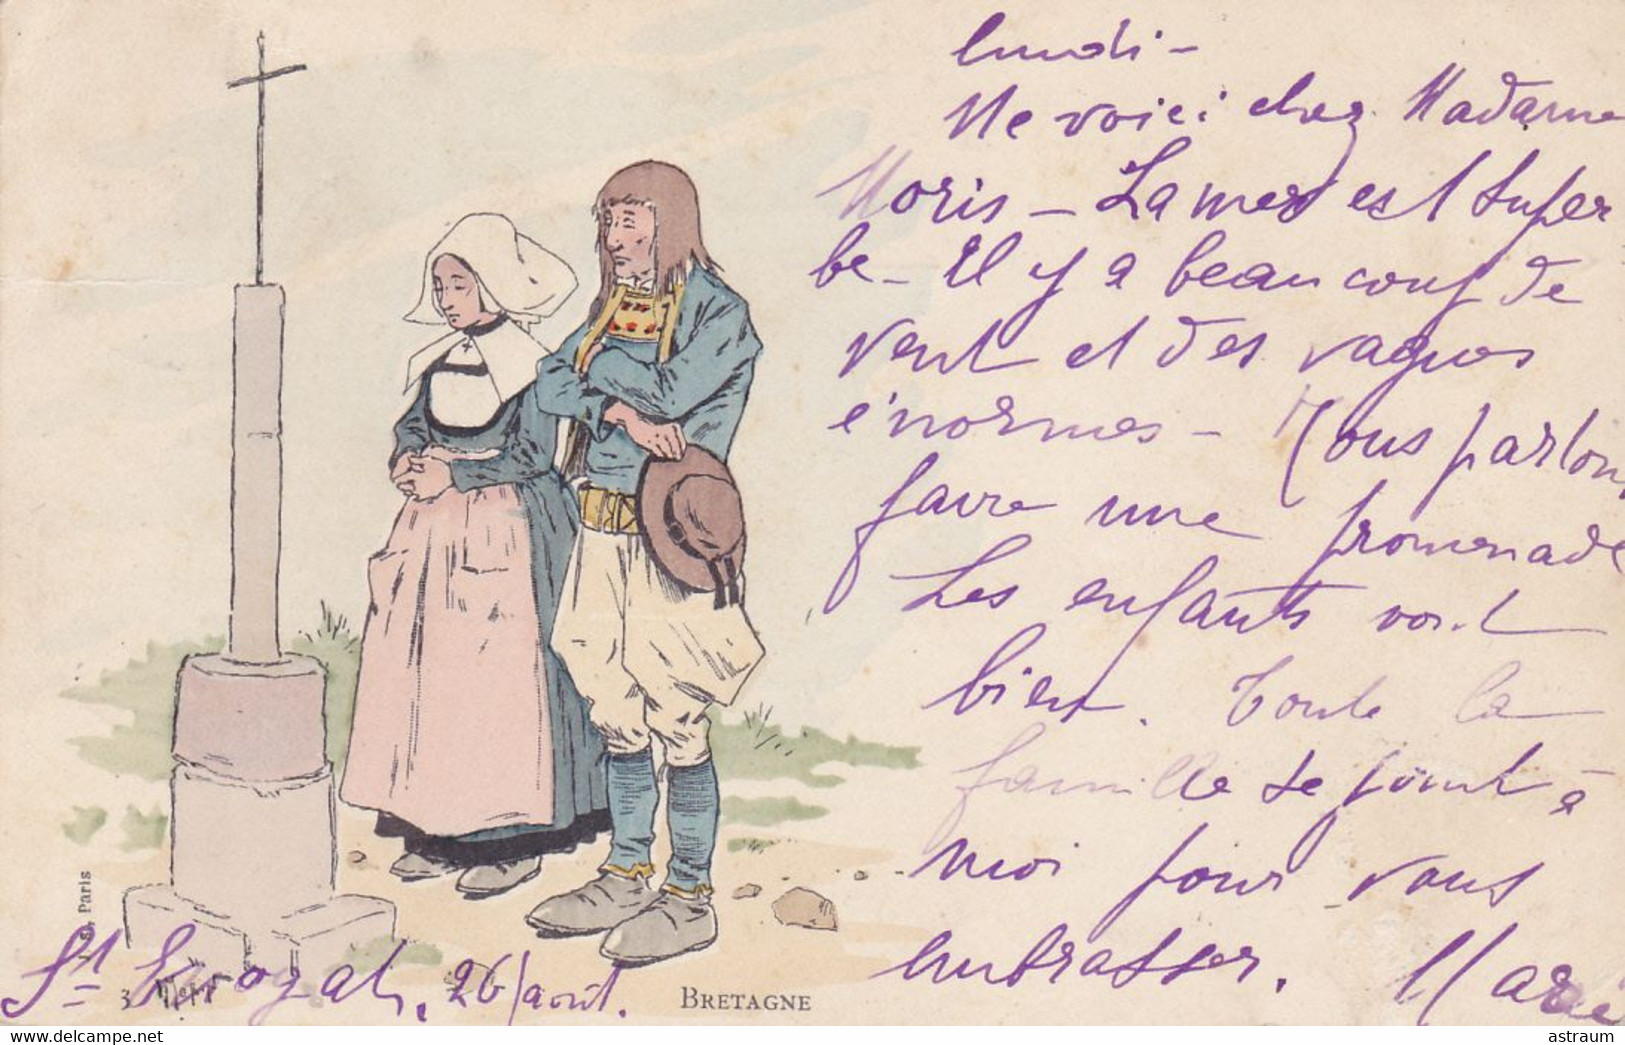 lundi -
Me voici chez Madame
Moris - La mer est super
be - Il y a beaucoup de
vent et des vagues
énormes - Nous partons
faire une promenade
Les enfants vont
bien. Toute la
famille se joint à
moi pour vous
embrasser. Marie
St 26 août.
3
BRETAGNE
Paris
delcampe.net
astraum